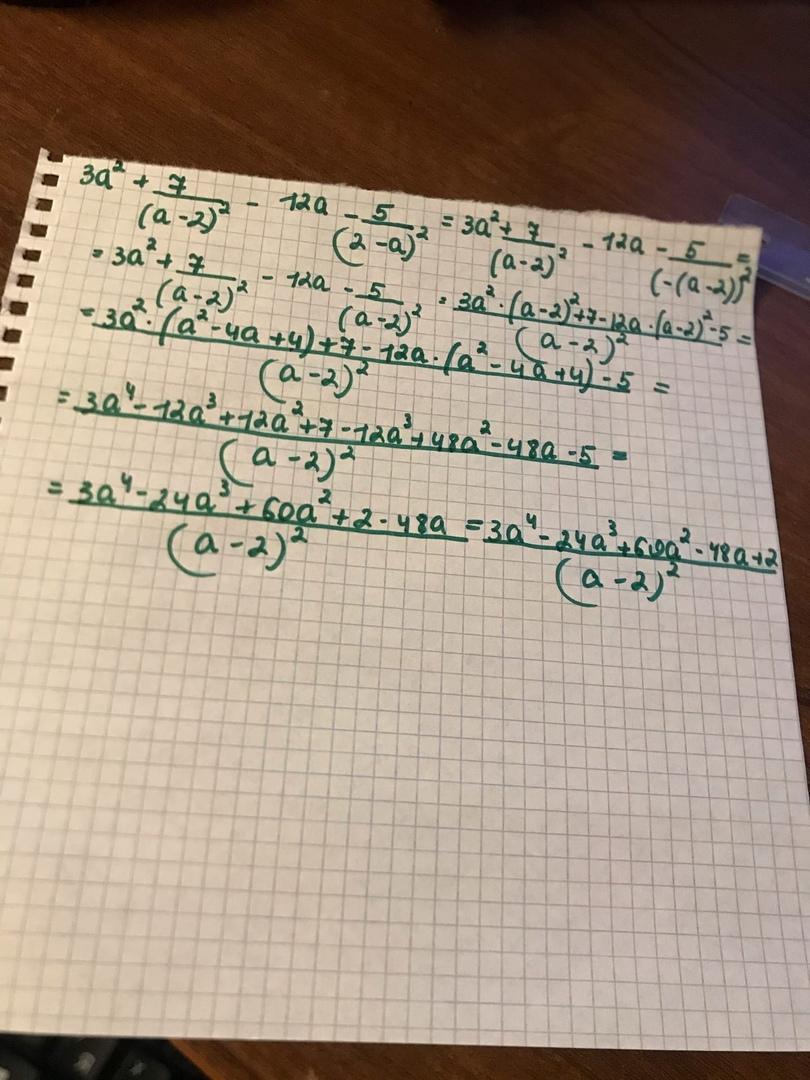 3a² + 7/(a-2)² - 12a - 5/(2-a)² = 3a² + 7/(a-2)² - 12a - 5/(-(a-2))² =
= 3a² + 7/(a-2)² - 12a - 5/(a-2)² = 3a²·(a-2)²+7-12a·(a-2)²-5/(a-2)² =
= 3a²·(a²-4a+4)+7-12a·(a²-4a+4)-5/(a-2)² =
= 3a⁴-12a³+12a²+7-12a³+48a²-48a-5/(a-2)² =
= 3a⁴-24a³+60a²+2-48a/(a-2)² = 3a⁴-24a³+60a²-48a+2/(a-2)²